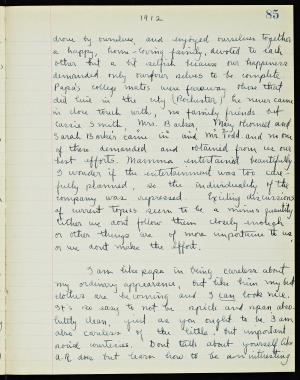 1912
85
drove by ourselves, and enjoyed ourselves together
a happy, home-loving family, devoted to each
other but a bit selfish because our happiness
demanded only our selves to be complete.
Papa's college mates were faraway, those that
did live in the city (Rochester) he never came
in close touch with, no family friends but
Cassie Smith Mrs. Barber. May
Sarah Barber came in and Mr. Todd and no one
of these demanded and obtained from us our
best efforts. Mamma entertained beautifully
I wonder if the entertainment was too care-
fully planned, so the individuality of the
company was repressed. Exciting discussions
of current topics seem to be a minus quantity
either we dont follow them closely enough
or other things are of more importance to us
or we dont make the effort.
I am like papa in being careless about
my ordinary appearance, but like him my best
clothes are becoming and I can look nice.
It is so easy to not be spick and span abso-
lutely clean, just as you ought to be. I am
also careless of the little, but important
social courtesies. Dont talk about yourself like
A.R. does but learn how to be an interesting